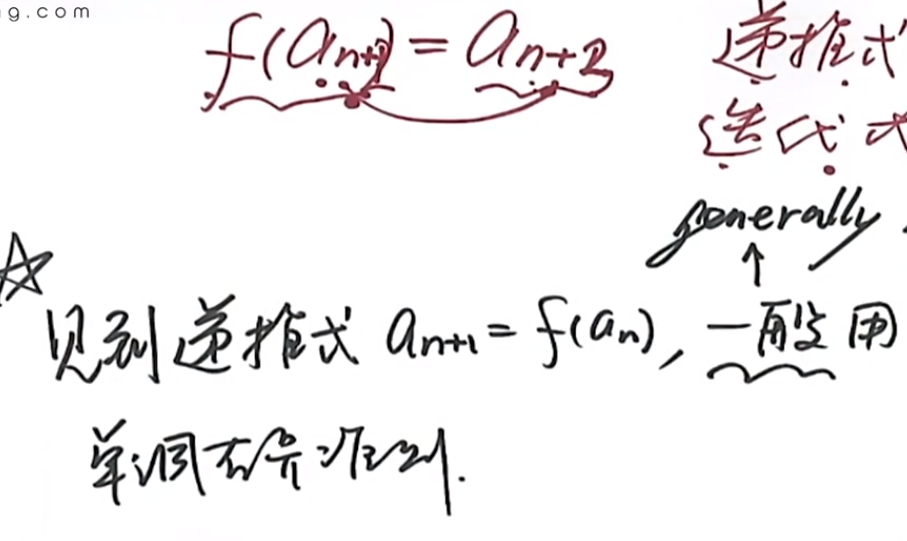 g.com
f(aₙ₊₂) = aₙ₊₃ 递推式
迭代式
generally
☆
见到递推式 aₙ₊₁ = f(aₙ), 一般用
单调有界准则.